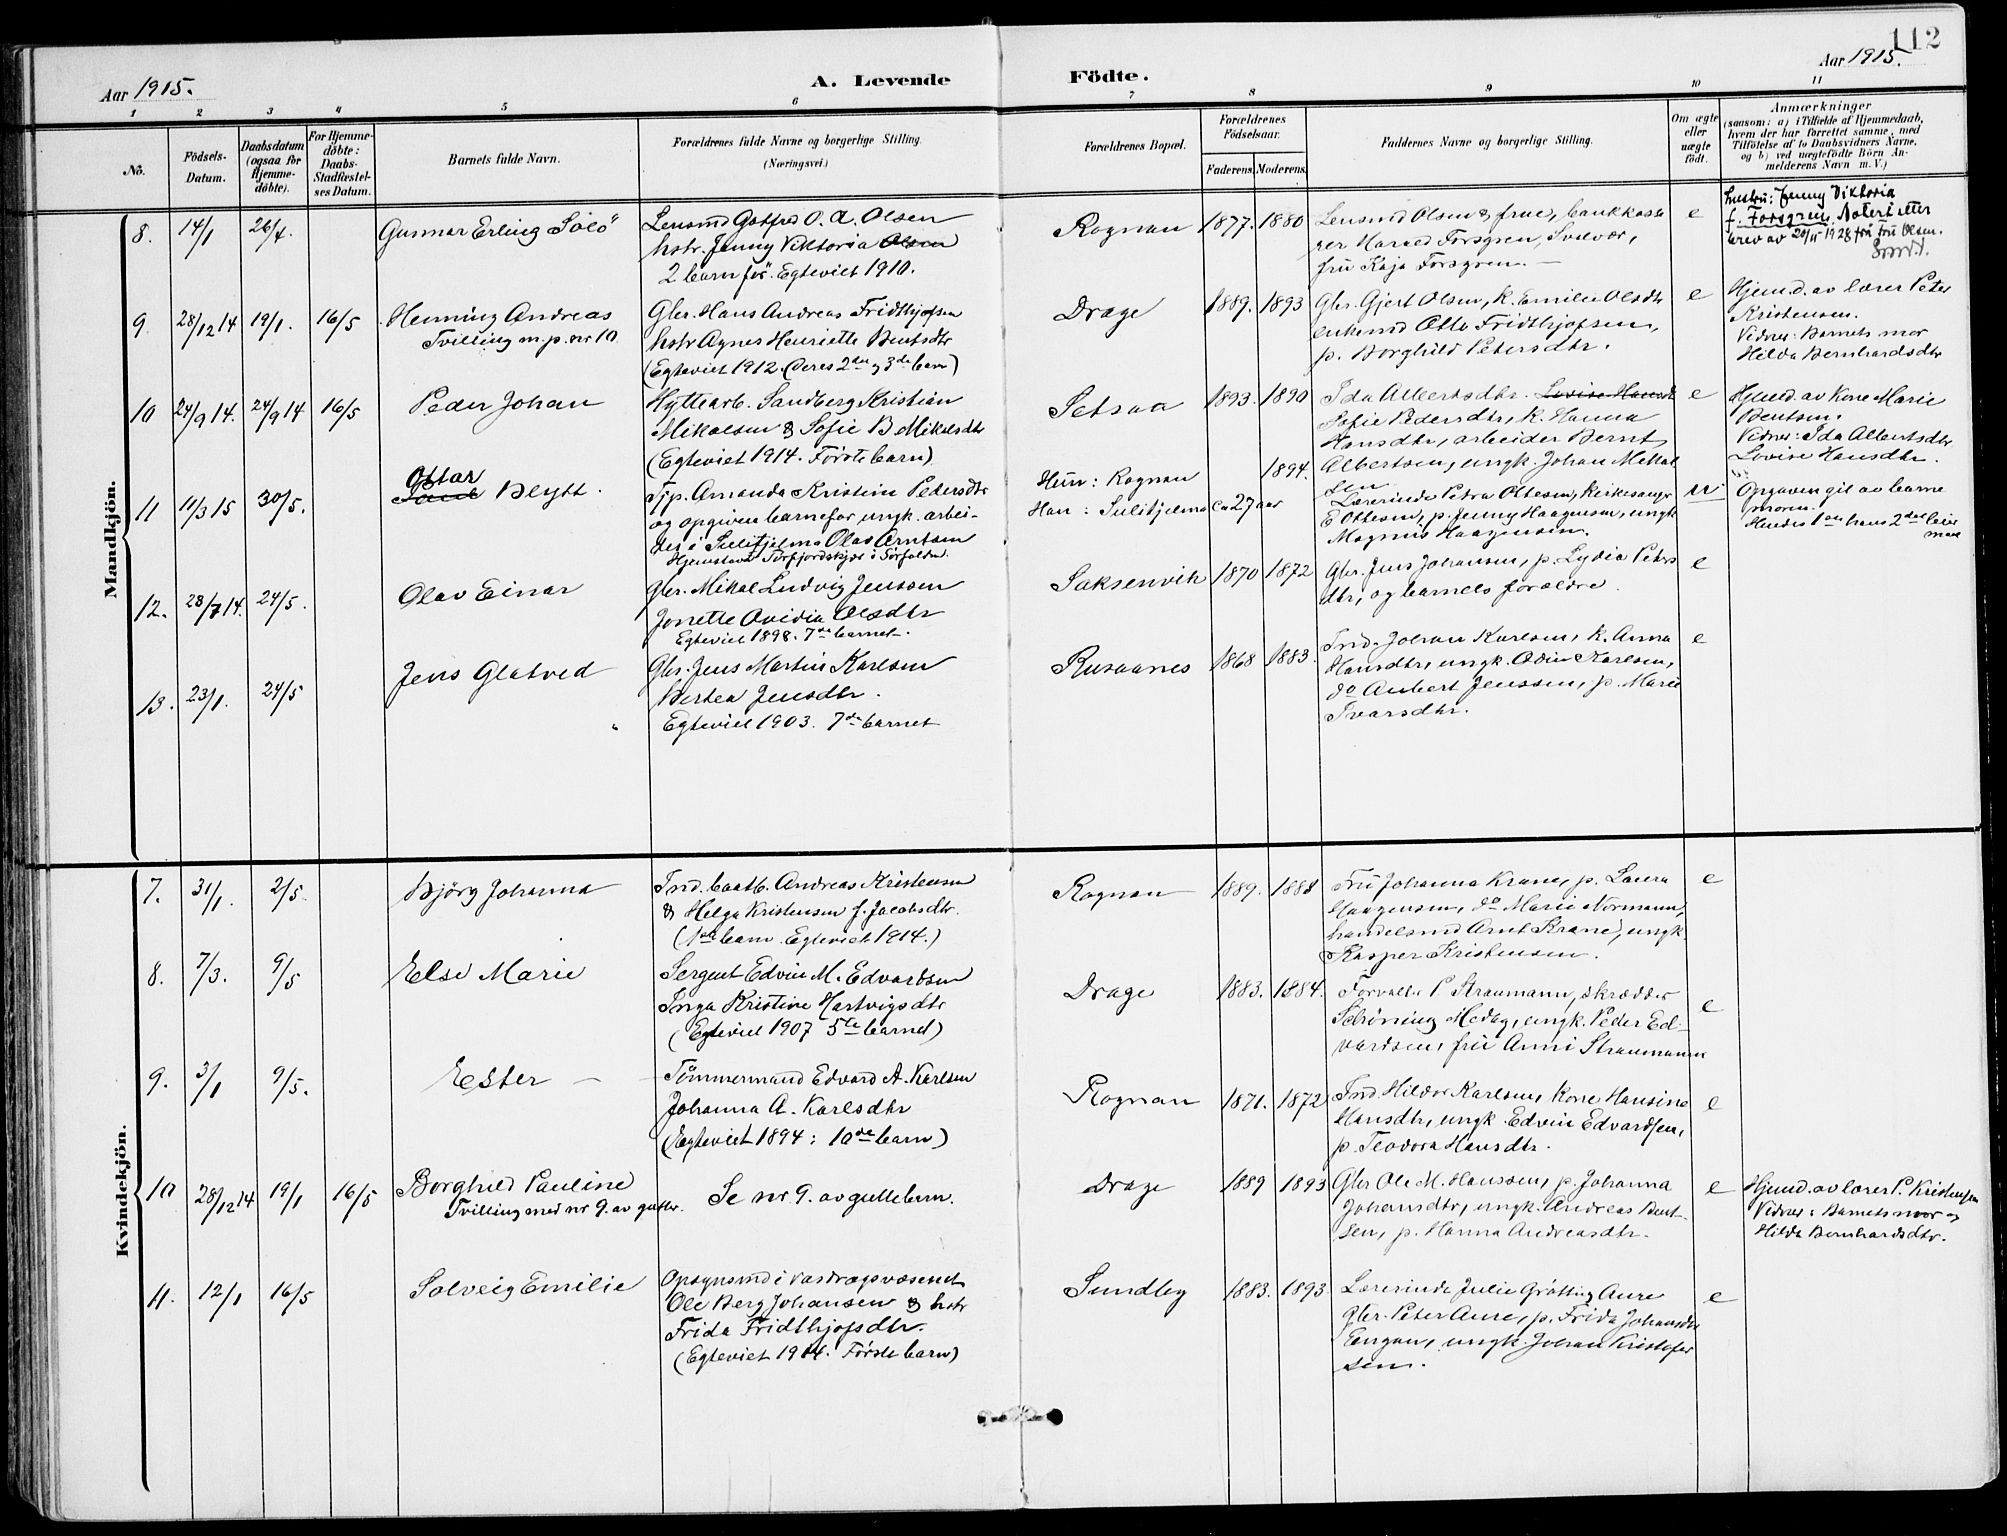 112
Aar 1915.
A. Levende
Födte.
Aar 1915.
1 2 3 4 5 6 7 8 9 10 11
No.
Födsels-
Datum.
Daabsdatum
(ogsaa for
Hjemme-
döbte).
For Hjemme-
döbte:
Daabs-
Stadfæstel-
ses Datum.
Barnets fulde Navn.
Forældrenes fulde Navne og borgerlige Stilling.
(Næringsvei.)
Forældrenes Bopæl.
Forældrenes
Födselsaar.
Faderens. Moderens.
Faddernes Navne og borgerlige Stilling.
Om ægte
eller
uægte
födt.
Anmærkninger
(saasom: a) i Tilfælde af Hjemmedaab,
hvem der har forrettet samme, med
Tilföielse af to Daabsvidners Navne,
og b) ved uægtefödte Börn An-
melderens Navn m. V.)
Mandkjön.
8. 14/1 26/4. Gunnar Erling Solö
Lensmd Gotfred O. A. Olsen
hstr. Jenny Viktoria Olsen
2 barn før. Egteviet 1910.
Rognan 1877. 1880
Lensmd Olsen & frue, bankkasse
rer Harald Forsgren, Svolvær,
fru Kaja Forsgren. –
e
hustru: Jenny Viktoria
f. Forsgren. Notert etter
brev av 20/11 1928 fra fru Olsen.
9. 28/12 14 19/1. 16/5 Henning Andreas
Tvilling m. p. nr 10
Gbr. Hans Andreas Fridthjofsen
hstr Agnes Henriette Bentsdtr
(Egteviet 1912. Deres 2det og 3de barn)
Drage 1889. 1893
Gbr. Gjert Olsen, k. Emilie Olsdtr
enkemd Otto Fridthjofsen,
p. Borghild Petersdtr.
e
Hjemd. av lærer Peter
Kristensen.
Vidner: Barnets mor
Hilda Bernhardsdtr
10 24/9 14. 24/9 14 16/5 Peder Johan
Hyttearb. Sandberg Kristian
Mikalsen & Sofie B. Mikalsdtr
(Egteviet 1914. Første barn)
Setsaa 1893. 1890
Ida Albertsdtr. Lovise Hansdtr
Sofie Pedersdtr, k. Hanna
Hansdtr, arbeider Bernt
Albertsen, ungk. Johan Mikal
sen
e
Hjemd. av Kone Marie
Bentsen.
Vidner: Ida Albertsdtr
Lovise Hansdtr.
11 11/3 15 30/5. Ottar
Blytt.
Tjp. Amanda Kristine Pedersdtr
og opgiven barnefar ungk. arbei-
der i Sulitjelma Olav Arntsen
Hjemstavn Torfjordskjær i Sørfolden.
Hun: Rognan
Han: Sulitjelma
ca 27 aar 1894.
Lærerinde Petra Ottesen, kirkesanger
E Ottesen, p. Jenny Haagensen, ungk
Magnus Haagensen.
u
Opgaven git av barne
moren.
Hendes 1ste hans 2det leier
maal
12. 28/7 14. 24/5. Olav Einar
Gbr. Mikal Ludvig Jenssen
Jonette Ovidia Olsdtr
Egteviet 1898. 7de barnet.
Saksenvik 1870 1872
Gbr. Jens Johansen, p. Lydia Peters
dtr, og barnets forældre.
e
13. 23/1. 24/5 Jens Glatved
Gbr. Jens Martin Karlsen
Bertea Jensdtr.
Egteviet 1903. 7de barnet
Rusaanes 1868 1883.
Ind. Johan Karlsen, k. Anna
Hansdtr, ungk. Odin Karlsen,
do Aubert Jenssen, p. Marie
Ivarsdtr.
e
Kvindekjön.
7. 31/1. 2/5. Bjørg Johanna
Ind. baatb. Andreas Kristensen
& Helga Kristensen f. Jacobsdtr.
(1ste barn. Egteviet 1914.)
Rognan 1889. 1888
Fru Johanna Krane, p. Laura
Haagensen, do Marie Normann,
handelsmd Arnt Krane, ungk.
Kasper Kristensen.
e
8. 7/3. 9/5 Else Marie
Sergent Edvin M. Edvardsen
Inga Kristine Hartvigsdtr
(Egteviet 1907 5te barnet)
Drage 1883. 1884.
Forvalter P Straumann, skrædder
Schrøning Medby, ungk. Peder Ed-
vardsen, fru Anni Straumann
e
9. 3/1 9/5. Ester –
Tömmermand Edvard A. Karlsen
Johanna A. Karlsdtr
(Egteviet 1894: 10de barn)
Rognan 1871. 1872
Ind. Hildor Karlsen, kone Hansine
Hansdtr, ungk. Edvin Edvardsen,
p. Teodora Hansdtr.
e
10 28/12 14 19/1 16/5 Borghild Pauline
Tvilling med nr 9. av gutter.
Se nr 9. av guttebarn.
Drage 1889 1893
Gbr Ole M. Hanssen, p. Johanna
Johansdtr, ungk. Andreas Bent-
sen, p. Hanna Andreasdtr.
e
Hjemd. av lærer P. Kristensen
Vidner: Barnets mor og
Hilda Bernhardsdtr.
11. 12/1 16/5 Solveig Emilie
Opsynsmd i vasdragsvæsenet
Ole Berg Johansen & hstr
Frida Fridthjofsdtr.
(Egteviet 1914. Første barn)
Sundby 1883. 1893
Lærerinde Julie Grøtting Aure
Gbr. Peter Aure, p. Frida Johansdtr
Engan, ungk. Johan Kristofer
sen.
e